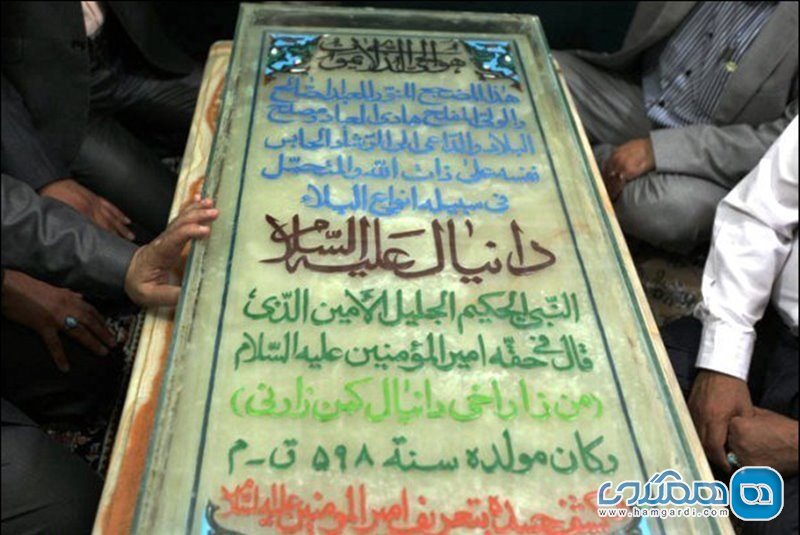 هو الحی الذی لا یموت
هذا المضجع المنور للعبد الصالح
والولی المفلح هادی العباد و مصلح
البلاد والداعی الی الرشاد الحابس
نفسه علی ذات الله والمتحمّل
فی سبیله انواع البلاء
دانیال علیه السّلام
النّبی الحکیم الجلیل الأمین الذّی
قال فی حقّه امیر المؤمنین علیه السّلام
(من زار اخی دانیال کمن زارنی)
وکان مولده سنة ۵۹۸ ق-م
جسده بتعریف امیر المؤمنین علیه السلام
همگردی
www.hamgardi.com